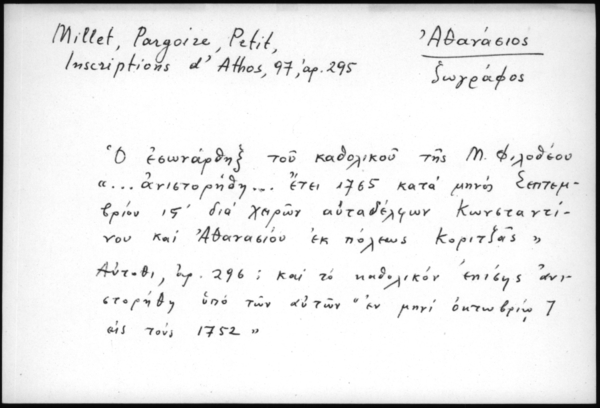 Millet, Pargoire, Petit,
Inscriptions d'Athos, 97, ἀρ. 295
Ἀθανάσιος
ζωγράφος
Ὁ ἐσωνάρθηξ τοῦ καθολικοῦ τῆς Μ. Φιλοθέου
«...ἀνιστορήθη... ἔτει 1765 κατά μηνός Σεπτεμ-
βρίου ιςʹ διά χειρῶν αὐταδέλφων Κωνσταντί-
νου καί Ἀθανασίου ἐκ πόλεως Κοριτζᾶς»
Αὐτόθι, ἀρ. 296: καί τό καθολικόν ἐπίσης ἀνι-
στορήθη ὑπό τῶν αὐτῶν "ἐν μηνί ὀκτωβρίῳ 7
εἰς τούς 1752"